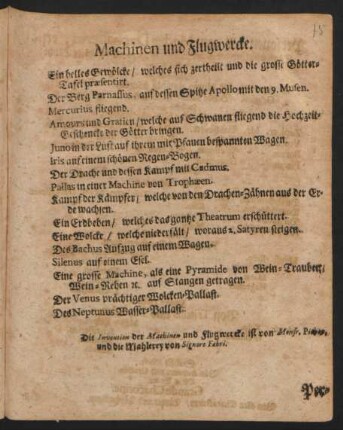 Machinen und Flugwercke.
Ein helles Gewölcke / welches sich zertheilt und die grosse Götter-
Tafel præsentirt.
Der Berg Parnassus, auf dessen Spitze Apollo mit den 9. Musen.
Mercurius fliegend.
Amours und Gratien / welche auf Schwanen fliegend die Hochzeit-
Geschencke der Götter bringen.
Juno in der Lufft auf ihrem mit Pfauen bespannten Wagen.
Iris auf einem schönen Regen-Bogen.
Der Drache und dessen Kampf mit Cadmus.
Pallas in einer Machine von Trophæen.
Kampf der Kämpfer / welche von den Drachen-Zähnen aus der Er-
de wachsen.
Ein Erdbeben / welches das gantze Theatrum erschüttert.
Eine Wolcke / welche niederfält / woraus 2. Satyren steigen.
Des Bachus Aufzug auf einem Wagen.
Silenus auf einem Esel.
Eine grosse Machine, als eine Pyramide von Wein-Trauben /
Wein-Reben ꝛc. auf Stangen getragen.
Der Venus prächtiger Wolcken-Pallast.
Des Neptunus Wasser-Pallast.
Die Invention der Machinen und Flugwercke ist von
und die Mahlerey von Signore Fabri.